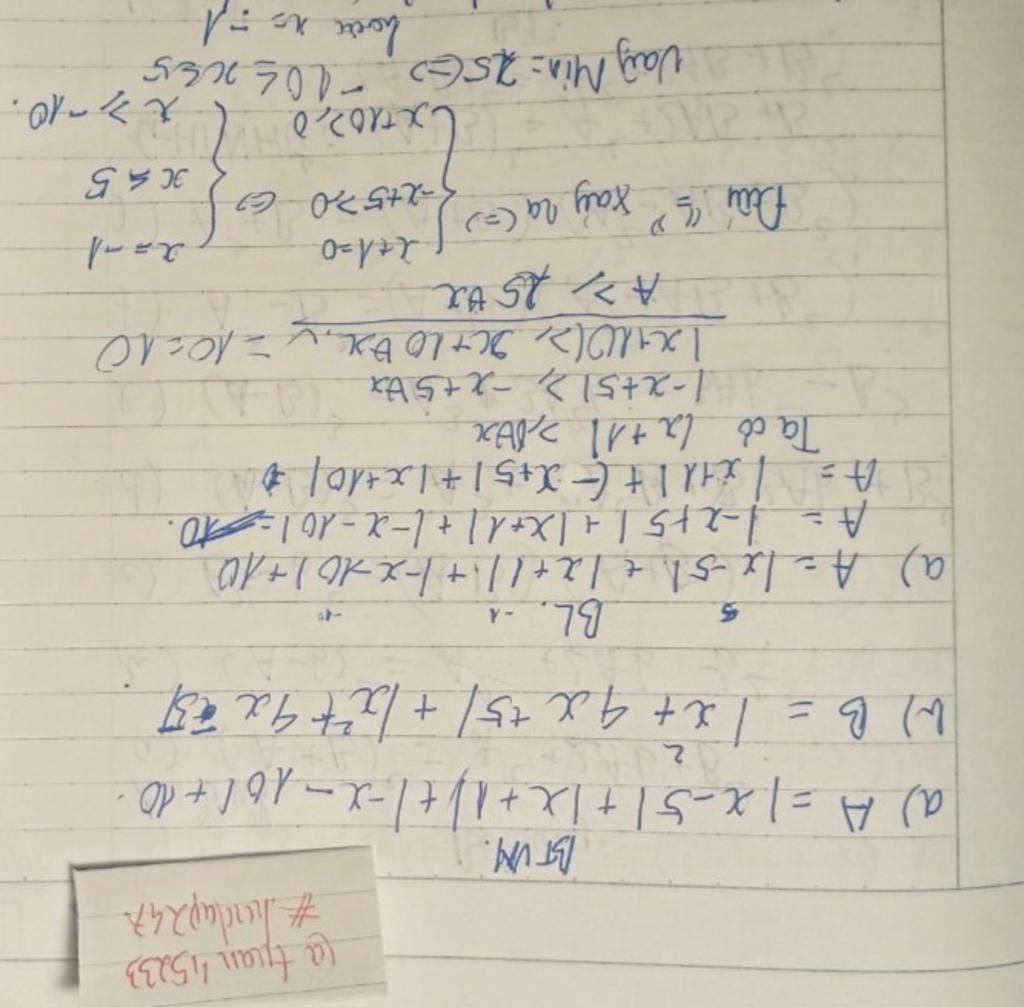 @ tuan 45233
# hoidap247
BTVN
a) A = |x - 5| + |x + 1| + |-x - 10| + 10.
b) B = |x² + 4x + 5| + |x² + 4x - 5|
BL.
5 -1 -10
a) A = |x - 5| + |x + 1| + |-x - 10| + 10
A = |-x + 5| + |x + 1| + |-x - 10| =
A = |x + 1| + |-x + 5| + |x + 10|
Ta có |x + 1| ≥ 0 ∀x
|-x + 5| ≥ -x + 5 ∀x
|x + 10| ≥ x + 10 ∀x. = 10 = 10
A ≥ 25 ∀x
Dấu "=" xảy ra <=> { x + 1 = 0 -x + 5 ≥ 0 x + 10 ≥ 0 <=> { x = -1 x ≤ 5 x ≥ -10.
Vậy Min = 25 <=> -10 ≤ x ≤ 5
hoặc x = -1